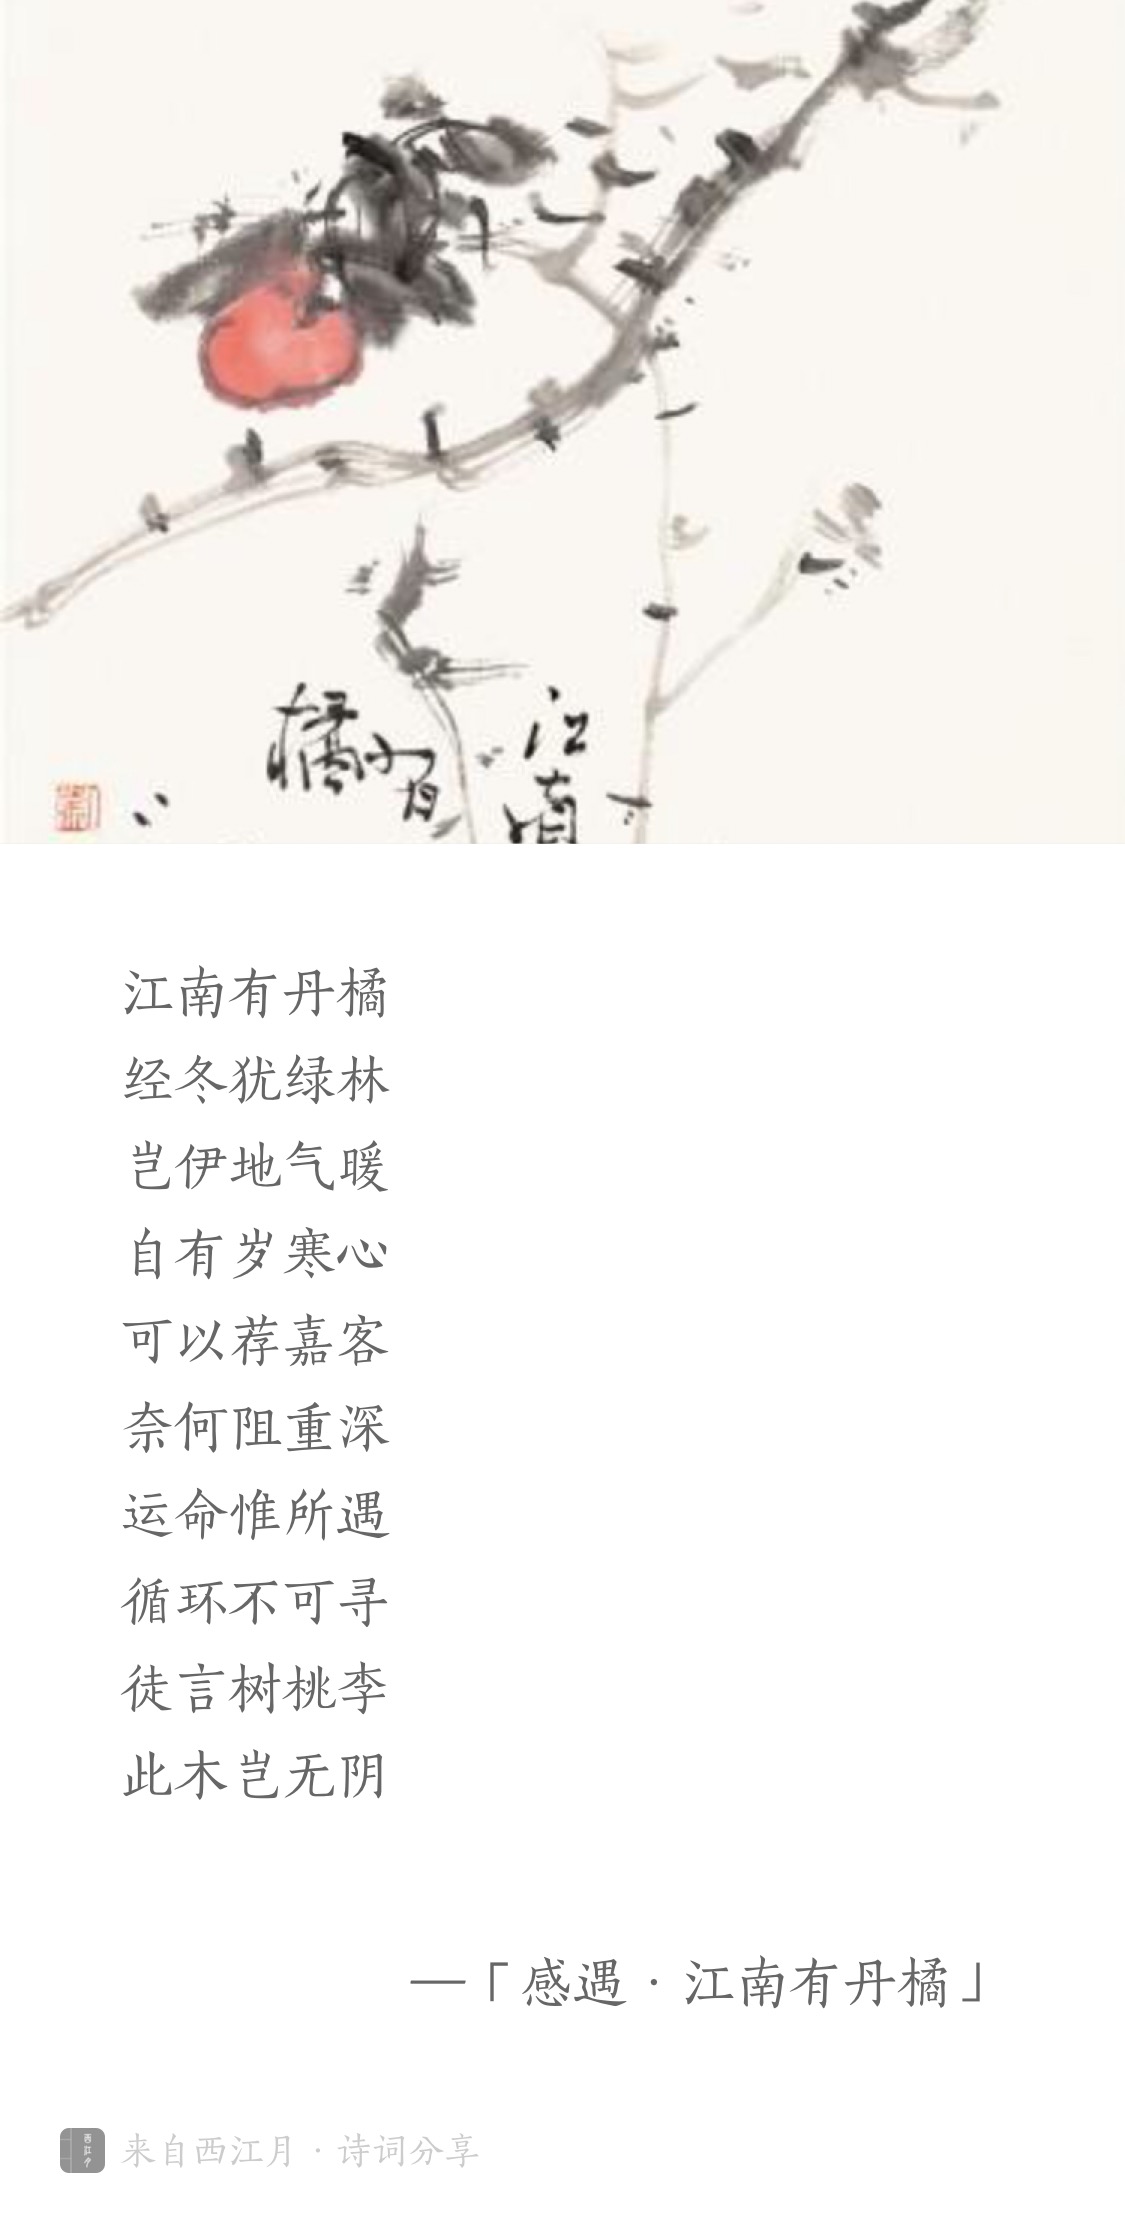 江南
有丹橘
江南有丹橘
经冬犹绿林
岂伊地气暖
自有岁寒心
可以荐嘉客
奈何阻重深
运命惟所遇
循环不可寻
徒言树桃李
此木岂无阴
—「感遇·江南有丹橘」
西江月
来自西江月·诗词分享